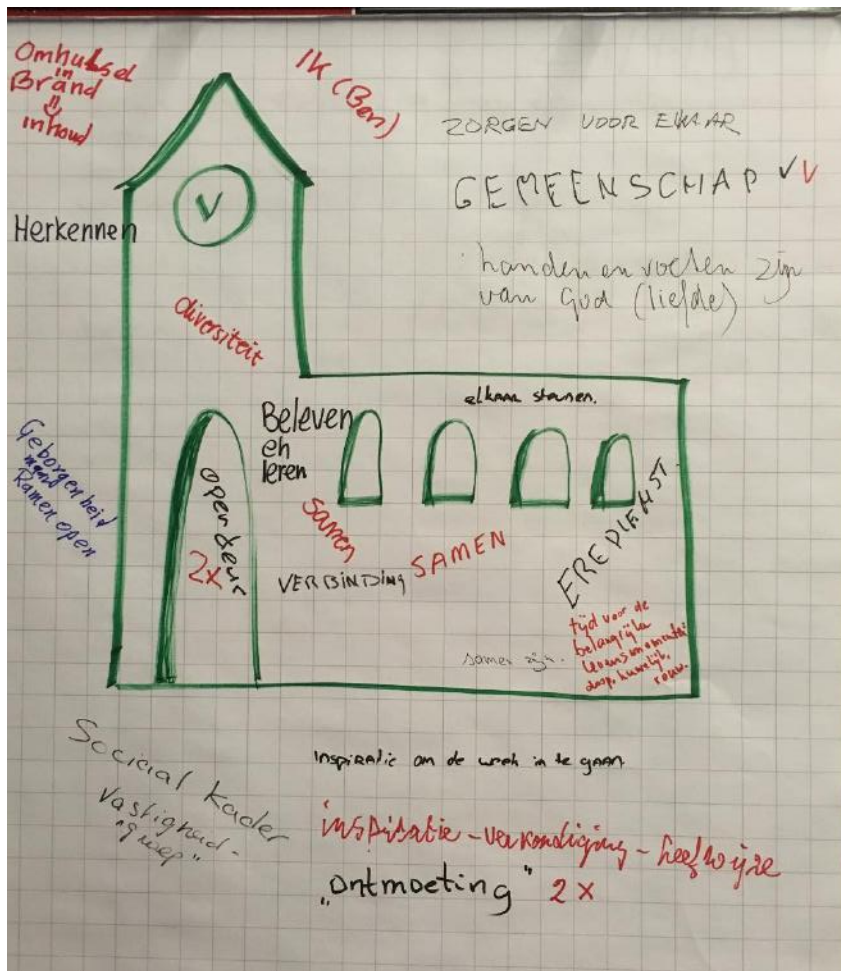 Omhulsel
in
Brand
inhoud
Ik (Ben)
ZORGEN VOOR ELKAAR
GEMEENSCHAP √ √
handen en voeten zijn
van God (liefde)
V
Herkennen
diversiteit
elkaar steunen.
Beleven
en
leren
Geborgenheid
Ramen open
open deur
2x
samen
SAMEN
VERBINDING
EREDIENST
samen zijn.
tijd voor de
belangrijke
levensmomenten
doop, huwelijk,
rouw.
Sociaal kader
Vastigheid -
"groep"
inspiratie om de week in te gaan
inspiratie - verkondiging - leefwijze
„ontmoeting" 2x